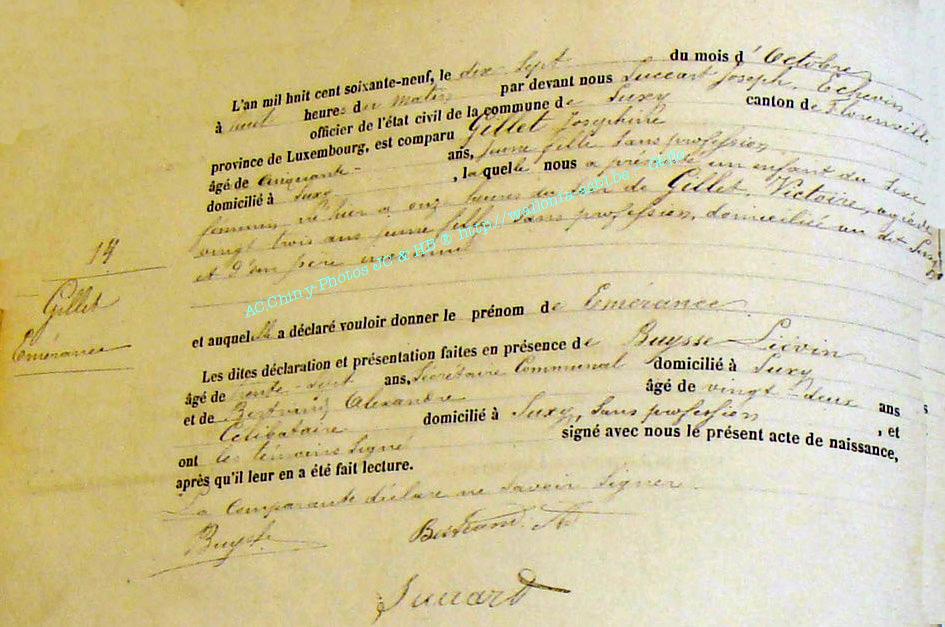 L'an mil huit cent soixante-neuf, le dix sept du mois d'Octobre
à neuf heures du matin par devant nous Succart Joseph, Echevin
officier de l'état civil de la commune de Suxy canton de Florenville
province de Luxembourg, est comparu Gillet Josephine
âgé de cinquante- ans, jeune fille sans profession
domicilié à Suxy, laquelle nous a présenté un enfant du sexe
feminin, né hier a onze heures du de Gillet, Victoire, agée de
vingt trois ans jeune fille, sans profession, domiciliée au dit Suxy
et d'un père
et auquelle a déclaré vouloir donner le prénom de Emérance
Les dites déclaration et présentation faites en présence de Buysse Liévin
âgé de trente-huit ans, Secrétaire Communal domicilié à Suxy
et de Bertrand Alexandre âgé de vingt-deux ans
Célibataire domicilié à Suxy, sans profession, et
ont les témoins signé signé avec nous le présent acte de naissance,
après qu'il leur en a été fait lecture.
La Comparante déclare ne savoir signer
Buysse
Bertrand
Succart
Gillet
Emérance
AC.Chiny-Photos JC & HB © http://wallonia-asbl.be